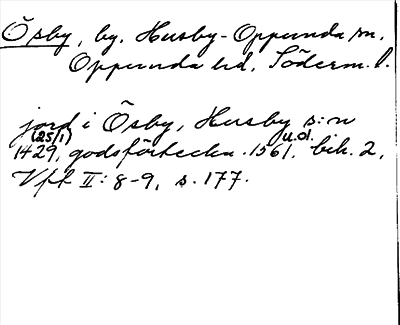 Ösby, by, Husby-Oppunda sn,
Oppunda hd, Söderm. l.
jord i Ösby, Husby s:n
(25/1) u.d.
1429, godsförteckn. 1561, bih. 2,
Vfk II: 8-9, s. 177.